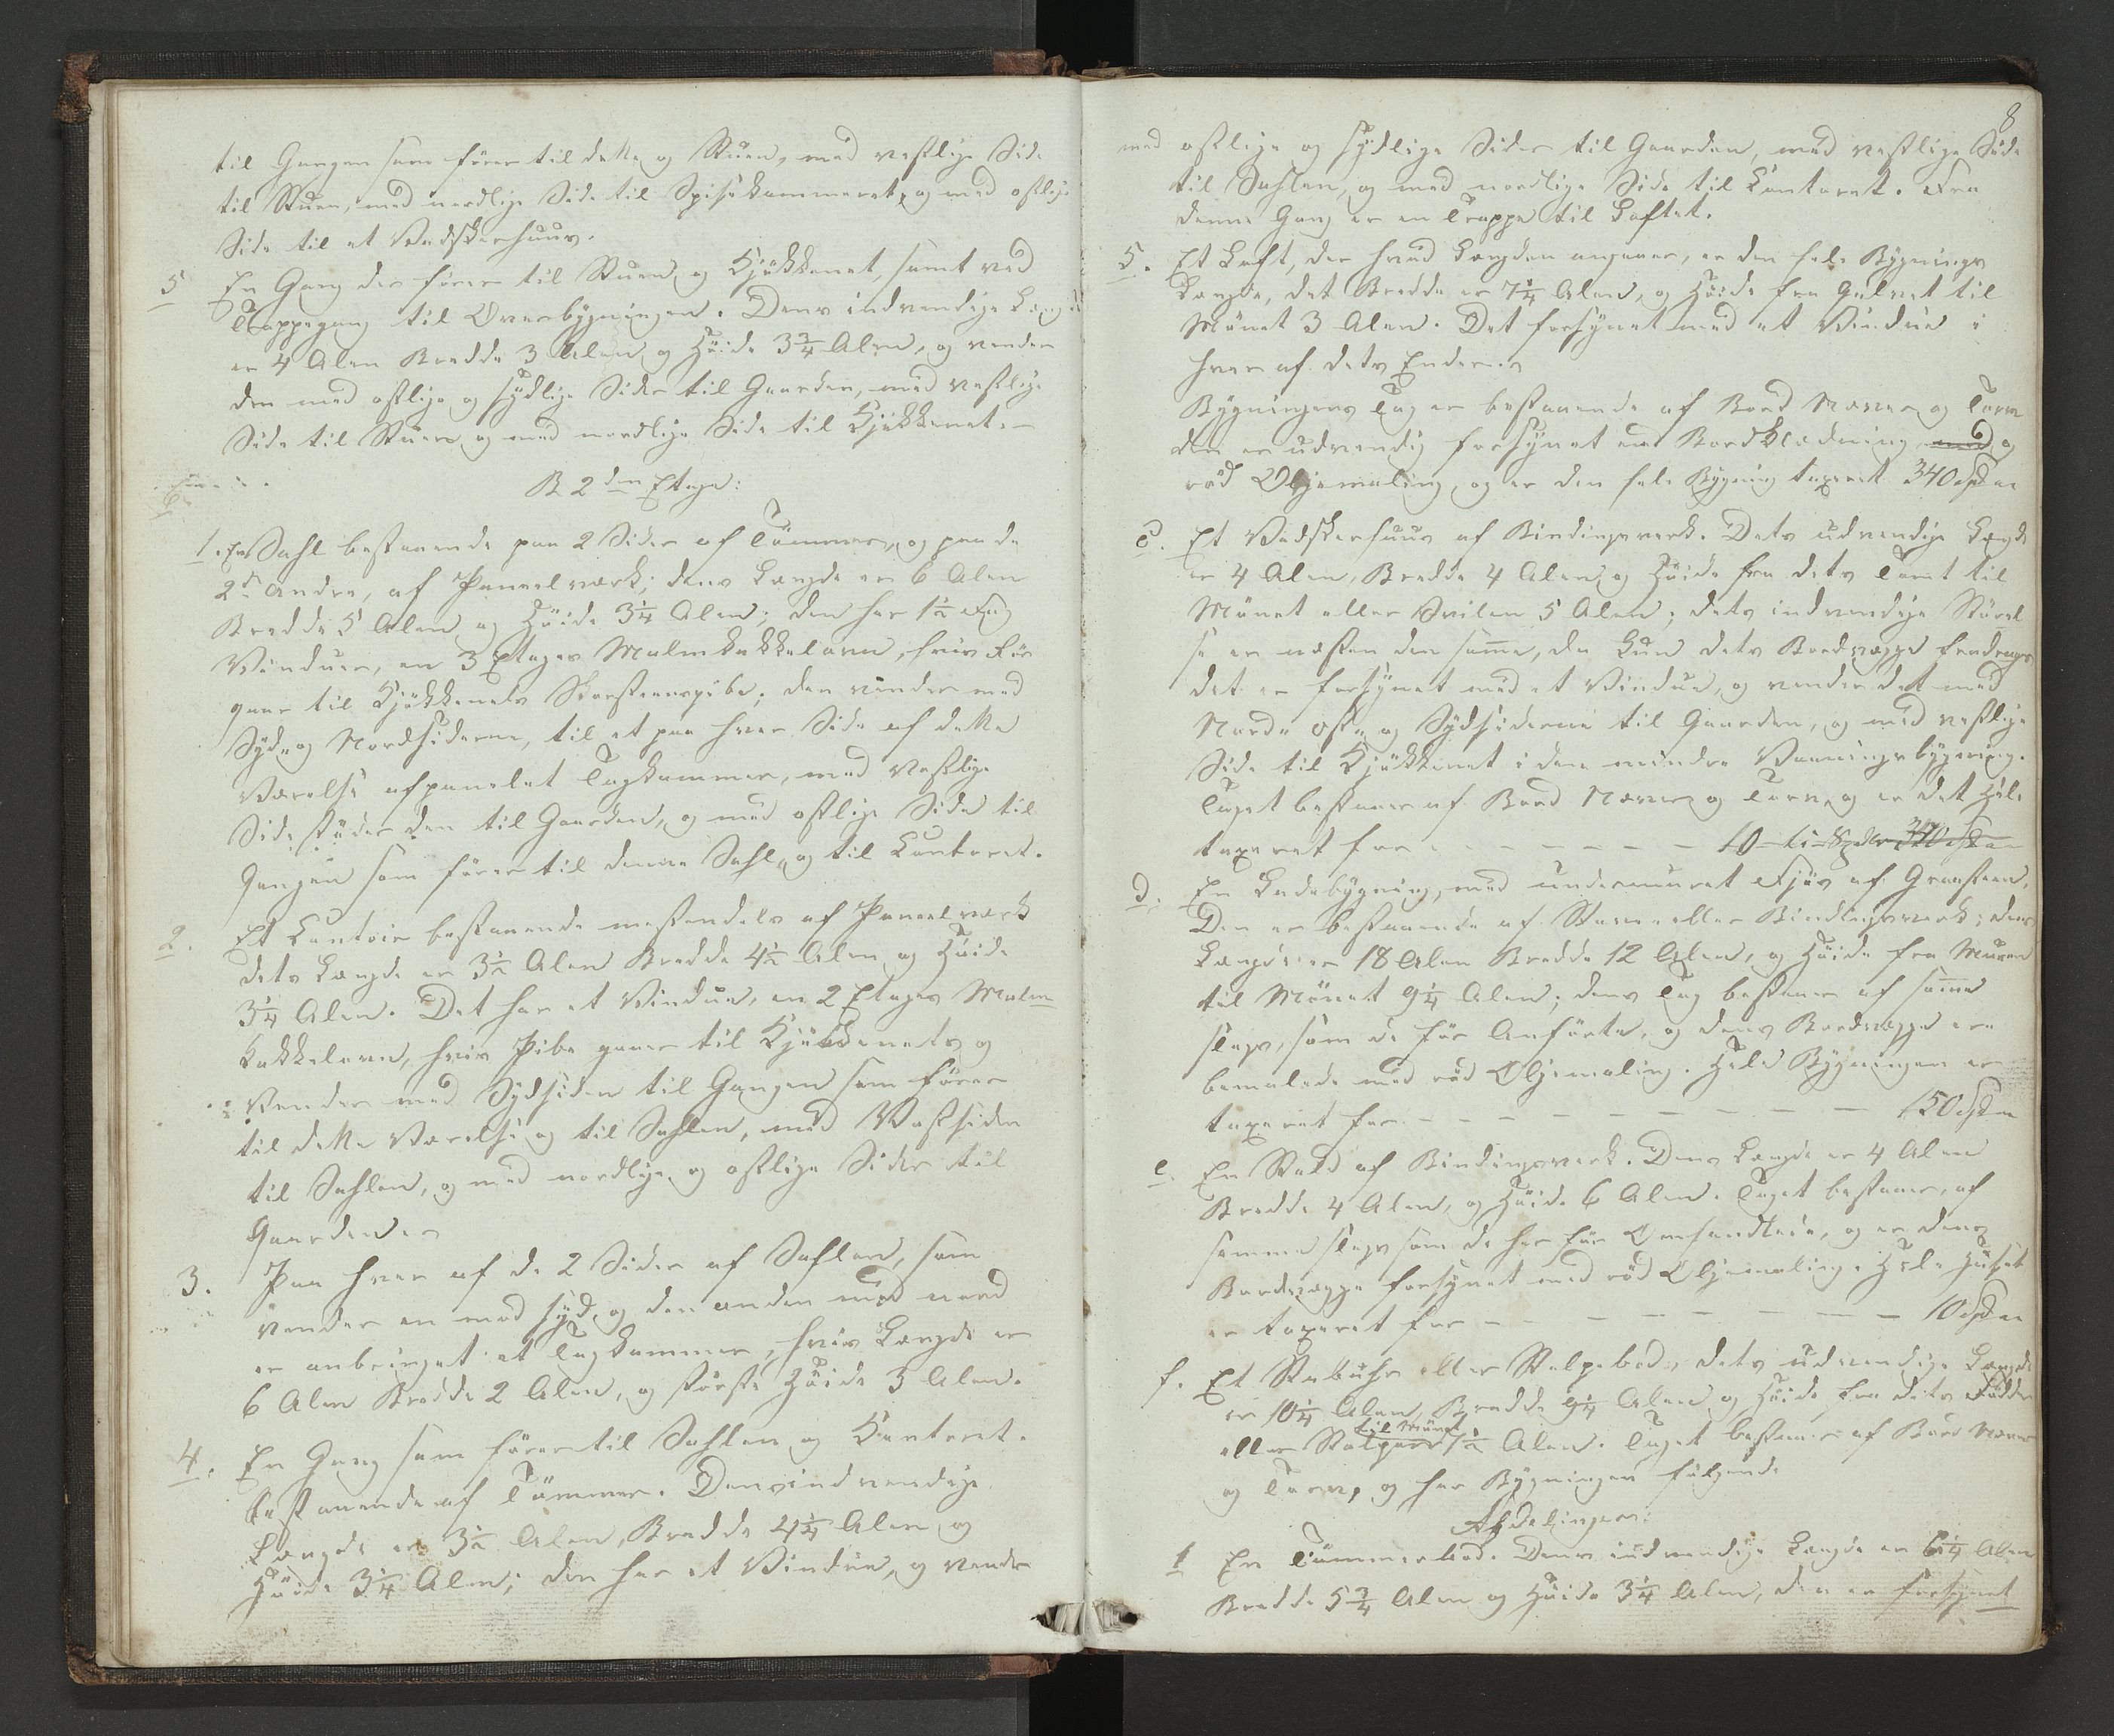 til Gangen som fører til dette og Stuen, med vestlige Side
til Stuen, med nordlige Side til Spisekammeret, og med østlige
Side til et Vadskerhuus.
5 En Gang der fører til Stuen og Kjøkkenet, samt ved
Trappegang til Overbygningen. Dens indvendige Længde
er 4 Alen Bredde 3 Alen og Høide 3 3/4 Alen, og vender
den med østlige og sydlige Sider til Gaarden, med vestlige
Side til Stuen og med nordlige Side til Kjøkkenet.
B 2den Etage:
1. En Sahl bestaaende paa 2 Sider af Tømmer, og paa de
2de andre, af Paneelværk; dens Længde er 6 Alen
Bredde 5 Alen og Høide 3 1/4 Alen; den har 1 1/2 Fag
Vinduer, en 3 Etages Malmkakkelovn, hvis Rør
gaar til Kjøkkenets Skorsteenspibe; den vender med
Syd og Nordsiderne, til et paa hver Side af dette
Værelse afpanelet Tagkammer, med Vestlige
Side støder den til Gaarden, og med østlige Side til
Gangen som fører til denne Sahl, og til Kontoret.
2. Et Contoir bestaaende mestendels af Paneelværk
dets Længde er 3 1/2 Alen Bredde 4 1/2 Alen og Høide
3 1/4 Alen. Det har et Vindue, en 2 Etages Malm
Kakkelovn, hvis Pibe gaaer til Kjøkkenets og
Vender med Sydsiden til Gangen som fører
til dette Værelse og til Sahlen, med Vestsiden
til Sahlen, og med nordlige og østlige Sider til
Gaarden.
3. Paa hver af de 2 Sider af Sahlen, som
vender en mod syd og den anden mod nord
er anbringet et Tagkammer, hvis Længde er
6 Alen Bredde 2 Alen, og største Høide 3 Alen.
4. En Gang som fører til Sahlen og Kontoret.
bestaaende af Tømmer. Dens indvendige
Længde er 3 1/2 Alen, Bredde 4 1/4 Alen og
Høide 3 1/4 Alen; den har et Vindue, og vender
8
med østlige og sydlige Sider til Gaarden, med vestlige Side
til Sahlen, og med nordlige Side til Contoret. Fra
denne Gang er en Trappe til Loftet.
5. Et Loft, der hvad Længden angaaer, er den hele Bygnings
Længde, det Bredde er 7 1/4 Alen, og Høide fra Gulvet til
Mønet 3 Alen. Det forsynet med et Vindue i
hver af dets Ender.
Bygningens Tag er bestaaende af Bord Næver og Torv
den er udvendig forsynet med Bordklædning og
rød Oljemaling, og er den hele Bygning taxeret 340 Spd
c. Et Vadskerhuus af Bindingsverk. Dets udvendige Længde
er 4 Alen, Bredde 4 Alen og Høide fra dets Tomt til
Mønet eller Svilen 5 Alen; dets indvendige Størrel
se er næsten den samme, da kun dets Bordvægge fradrages
det er forsynet med et Vindue, og vender det med
Nord- øst- og Sydsiderne til Gaarden, og med vestlige
Side til Kjøkkenet i den mindre Vaaningsbygning.
Taget bestaaer af Bord Næver og Torv, og er det Hele
taxeret for - - - - - 10 - ti - Spdlr 340 Spd
d. En Ladebygning, med undermuuret Fjøs af Graasteen,
Den er bestaaende af Stav- eller Bindingsverk; dens
Længde er 18 Alen Bredde 12 Alen, og Høide fra Muren
til Mønet 9 1/4 Alen; dens Tag bestaaer af samme
slags, som de før Anførte, og dens Bordvægge ere
bemalede med rød Oljemaling. Hele Bygningen er
taxeret for - - - - - - 150 Spd
e. En Stald af Bindingsverk. Dens Længde er 4 Alen
Bredde 4 Alen, og Høide 6 Alen. Taget bestaaer, af
samme slags som de her før Omhandlede, og er dens
Bordvægge forsynet med rød Oljemaling. Hele Huset
er taxeret for - - - - - - 10 Spd
f. Et Stabuhr eller Stolpebod, dets udvendige Længde
er 10 1/4 Alen Bredde 9 1/4 Alen og Høide fra dets Fødder
til Mønet
eller Stolper Alen. Taget bestaaer af Bord Næver
og Torv, og har Bygningen følgende
Afdelinger:
1 En Tømmerbod. Dens indvendige Længde er 6 1/4 Alen
Bredde 5 3/4 Alen og Høide 3 1/4 Alen, den er forsynet